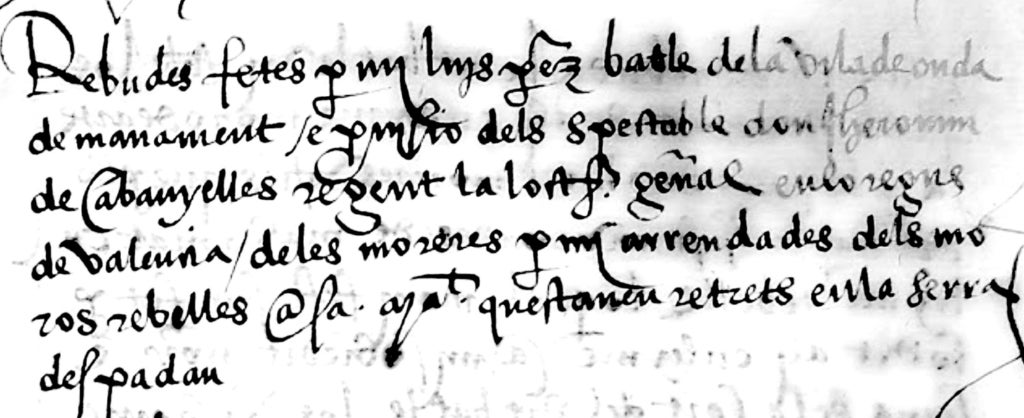 Rebudes fetes p mi luys perez batle dela vila de onda
de manament / e pmisio dels spectable don Iheronim
de Cabanyelles regent la loctª general en lo regne
de Valencia / deles moreres p mi arrendades dels mo
ros rebelles @ sa . mat. questaven retrets en la serra
despadan